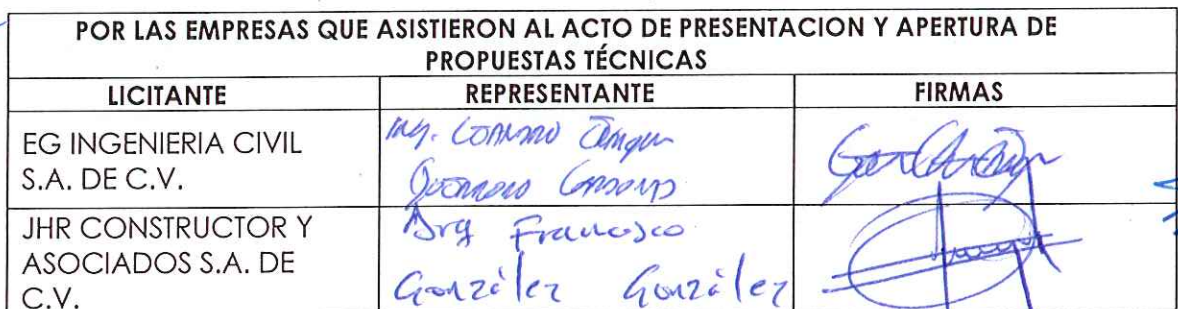 POR LAS EMPRESAS QUE ASISTIERON AL ACTO DE PRESENTACION Y APERTURA DE
PROPUESTAS TÉCNICAS
LICITANTE REPRESENTANTE FIRMAS
EG INGENIERIA CIVIL
S.A. DE C.V.
Ing.
JHR CONSTRUCTOR Y
ASOCIADOS S.A. DE
C.V.
Arq Francisco
González González